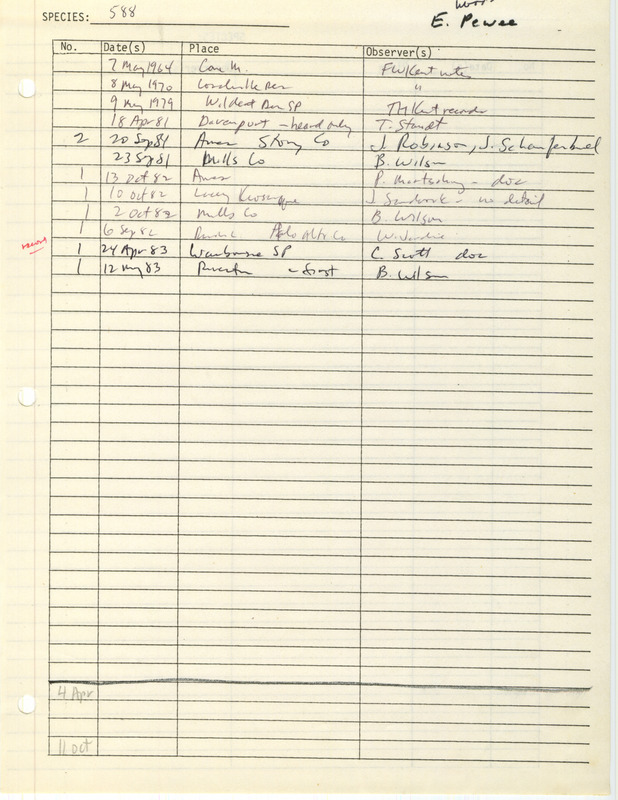 SPECIES: 588
E. Pewee
No. Date(s) Place Observer(s)
7 May 1964 FWKent notes
8 May 1970 "
9 May 1979 Wildcat Den SP THKent records
18 Apr 81 Davenport - heard only T. Staudt
2 20 Sep 81 Ames Story Co J. Robinson, J.
23 Sep 81 Mills Co B. Wilson
1 13 Oct 82 Ames P. - doc
1 10 Oct 82 Lacey Keosauqua J. - no detail
1 2 Oct 82 Mills Co B. Wilson
1 6 Sep 82 Palo Alto Co W.
record 1 24 Apr 83 Waubonsie SP C. Scott doc
1 12 May 83 Riverton - first B. Wilson
4 Apr
11 Oct